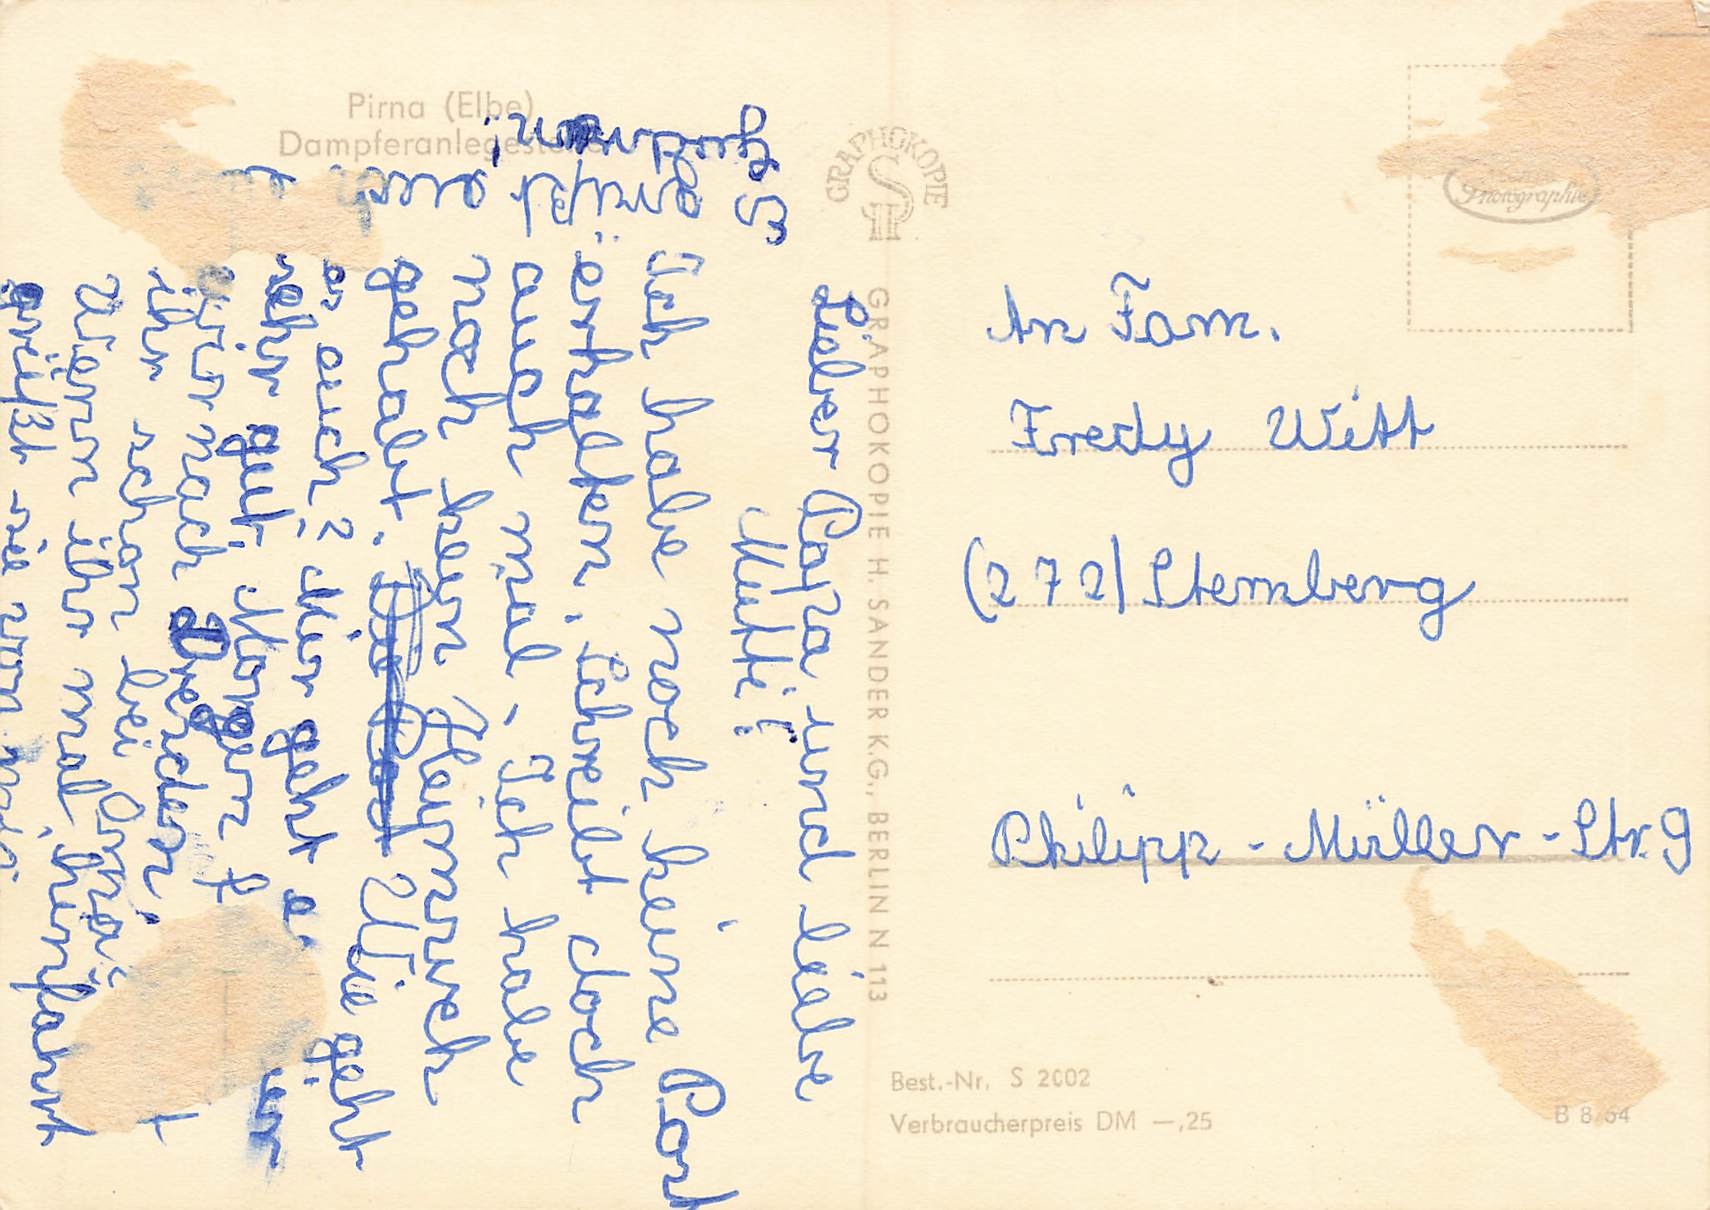 Pirna (Elbe)
Dampferanlegestelle
Lieber Papa und liebe
Mutti!
Ich habe noch keine Post
erhalten. Schreibt doch
auch mal. Ich habe
noch kein Heimweh
gehabt. Wie geht
auch? Mir geht
sehr gut. Morgen
wir nach Dresden.
ihr schon bei Oma
Wenn ihr mal hinfahrt
grüßt sie von
Es grüßt euch
Gudrun!
GRAPHOKOPIE
GRAPHOKOPIE H. SANDER K.G., BERLIN N 113
Photographie
An Fam.
Fredy Witt
(272) Sternberg
Philipp-Müller-Str. 9
Best.-Nr. S 2002
Verbraucherpreis DM —,25